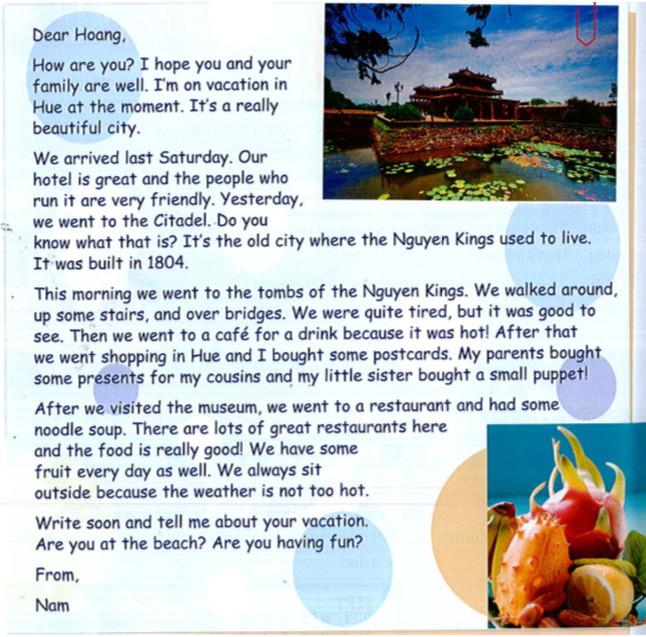 Dear Hoang,
How are you? I hope you and your
family are well. I'm on vacation in
Hue at the moment. It's a really
beautiful city.
We arrived last Saturday. Our
hotel is great and the people who
run it are very friendly. Yesterday,
we went to the Citadel. Do you
know what that is? It's the old city where the Nguyen Kings used to live.
It was built in 1804.
This morning we went to the tombs of the Nguyen Kings. We walked around,
up some stairs, and over bridges. We were quite tired, but it was good to
see. Then we went to a café for a drink because it was hot! After that
we went shopping in Hue and I bought some postcards. My parents bought
some presents for my cousins and my little sister bought a small puppet!
After we visited the museum, we went to a restaurant and had some
noodle soup. There are lots of great restaurants here
and the food is really good! We have some
fruit every day as well. We always sit
outside because the weather is not too hot.
Write soon and tell me about your vacation.
Are you at the beach? Are you having fun?
From,
Nam